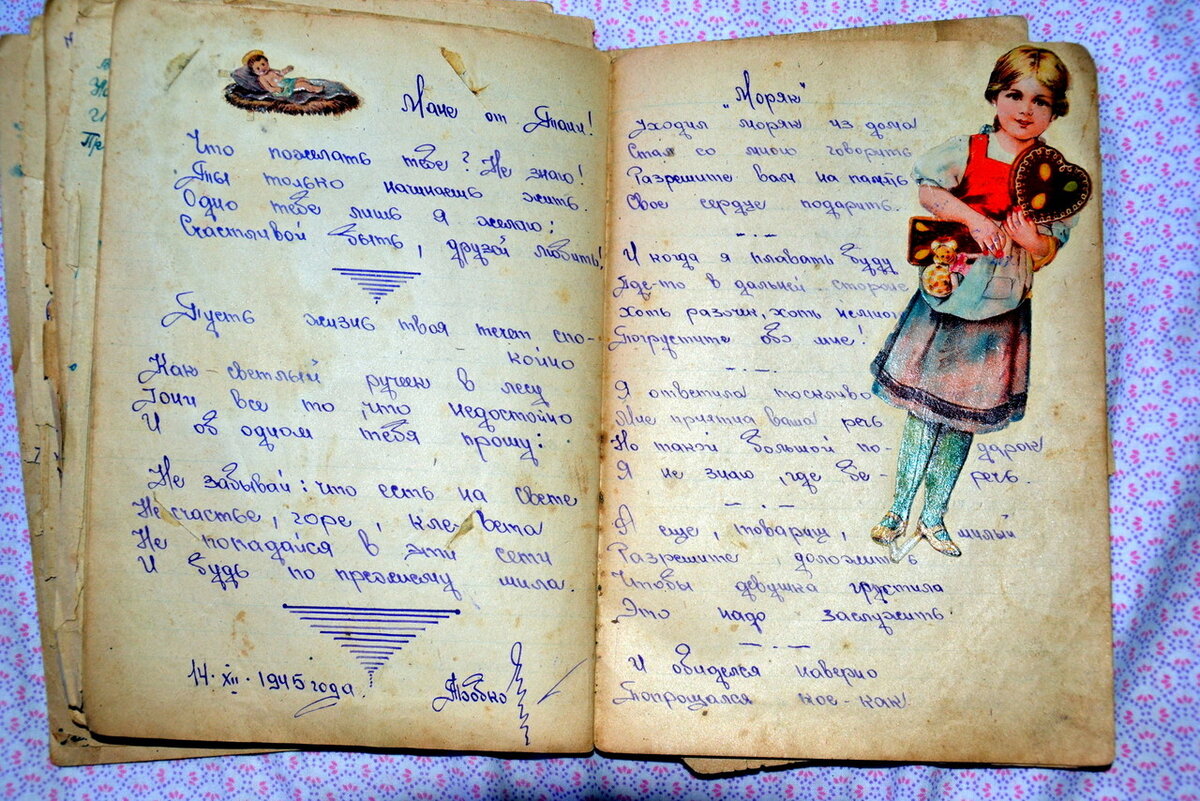 Мане от Тани!
Что пожелать тебе? Не знаю!
Ты только начинаешь жить.
Одно тебе лишь я желаю:
Счастливой быть, друзей любить!
Пусть жизнь твоя течет спо-
койно
Как светлый ручеек в лесу
Гони все то, что недостойно
И об одном тебя прошу:
Не забывай: что есть на свете
Несчастье, горе, клевета
Не попадайся в эти сети
И будь по прежнему мила.
14. XII. 1945 года.
"Моряк"
Уходил моряк из дома
Стал со мною говорить
Разрешите вам на память
Свое сердце подарить.
И когда я плавать буду
Где-то в дальней стороне
Хоть разочик, хоть немного
Погрустите обо мне!
Я ответила тоскливо
Мне приятна ваша речь
Но такой большой по- дарок
Я не знаю, где бе- речь.
А еще, товарищ, милый
Разрешите, доложить
Чтобы девушка грустила
Это надо заслужить.
И обиделся наверно
Попрощался кое-как.